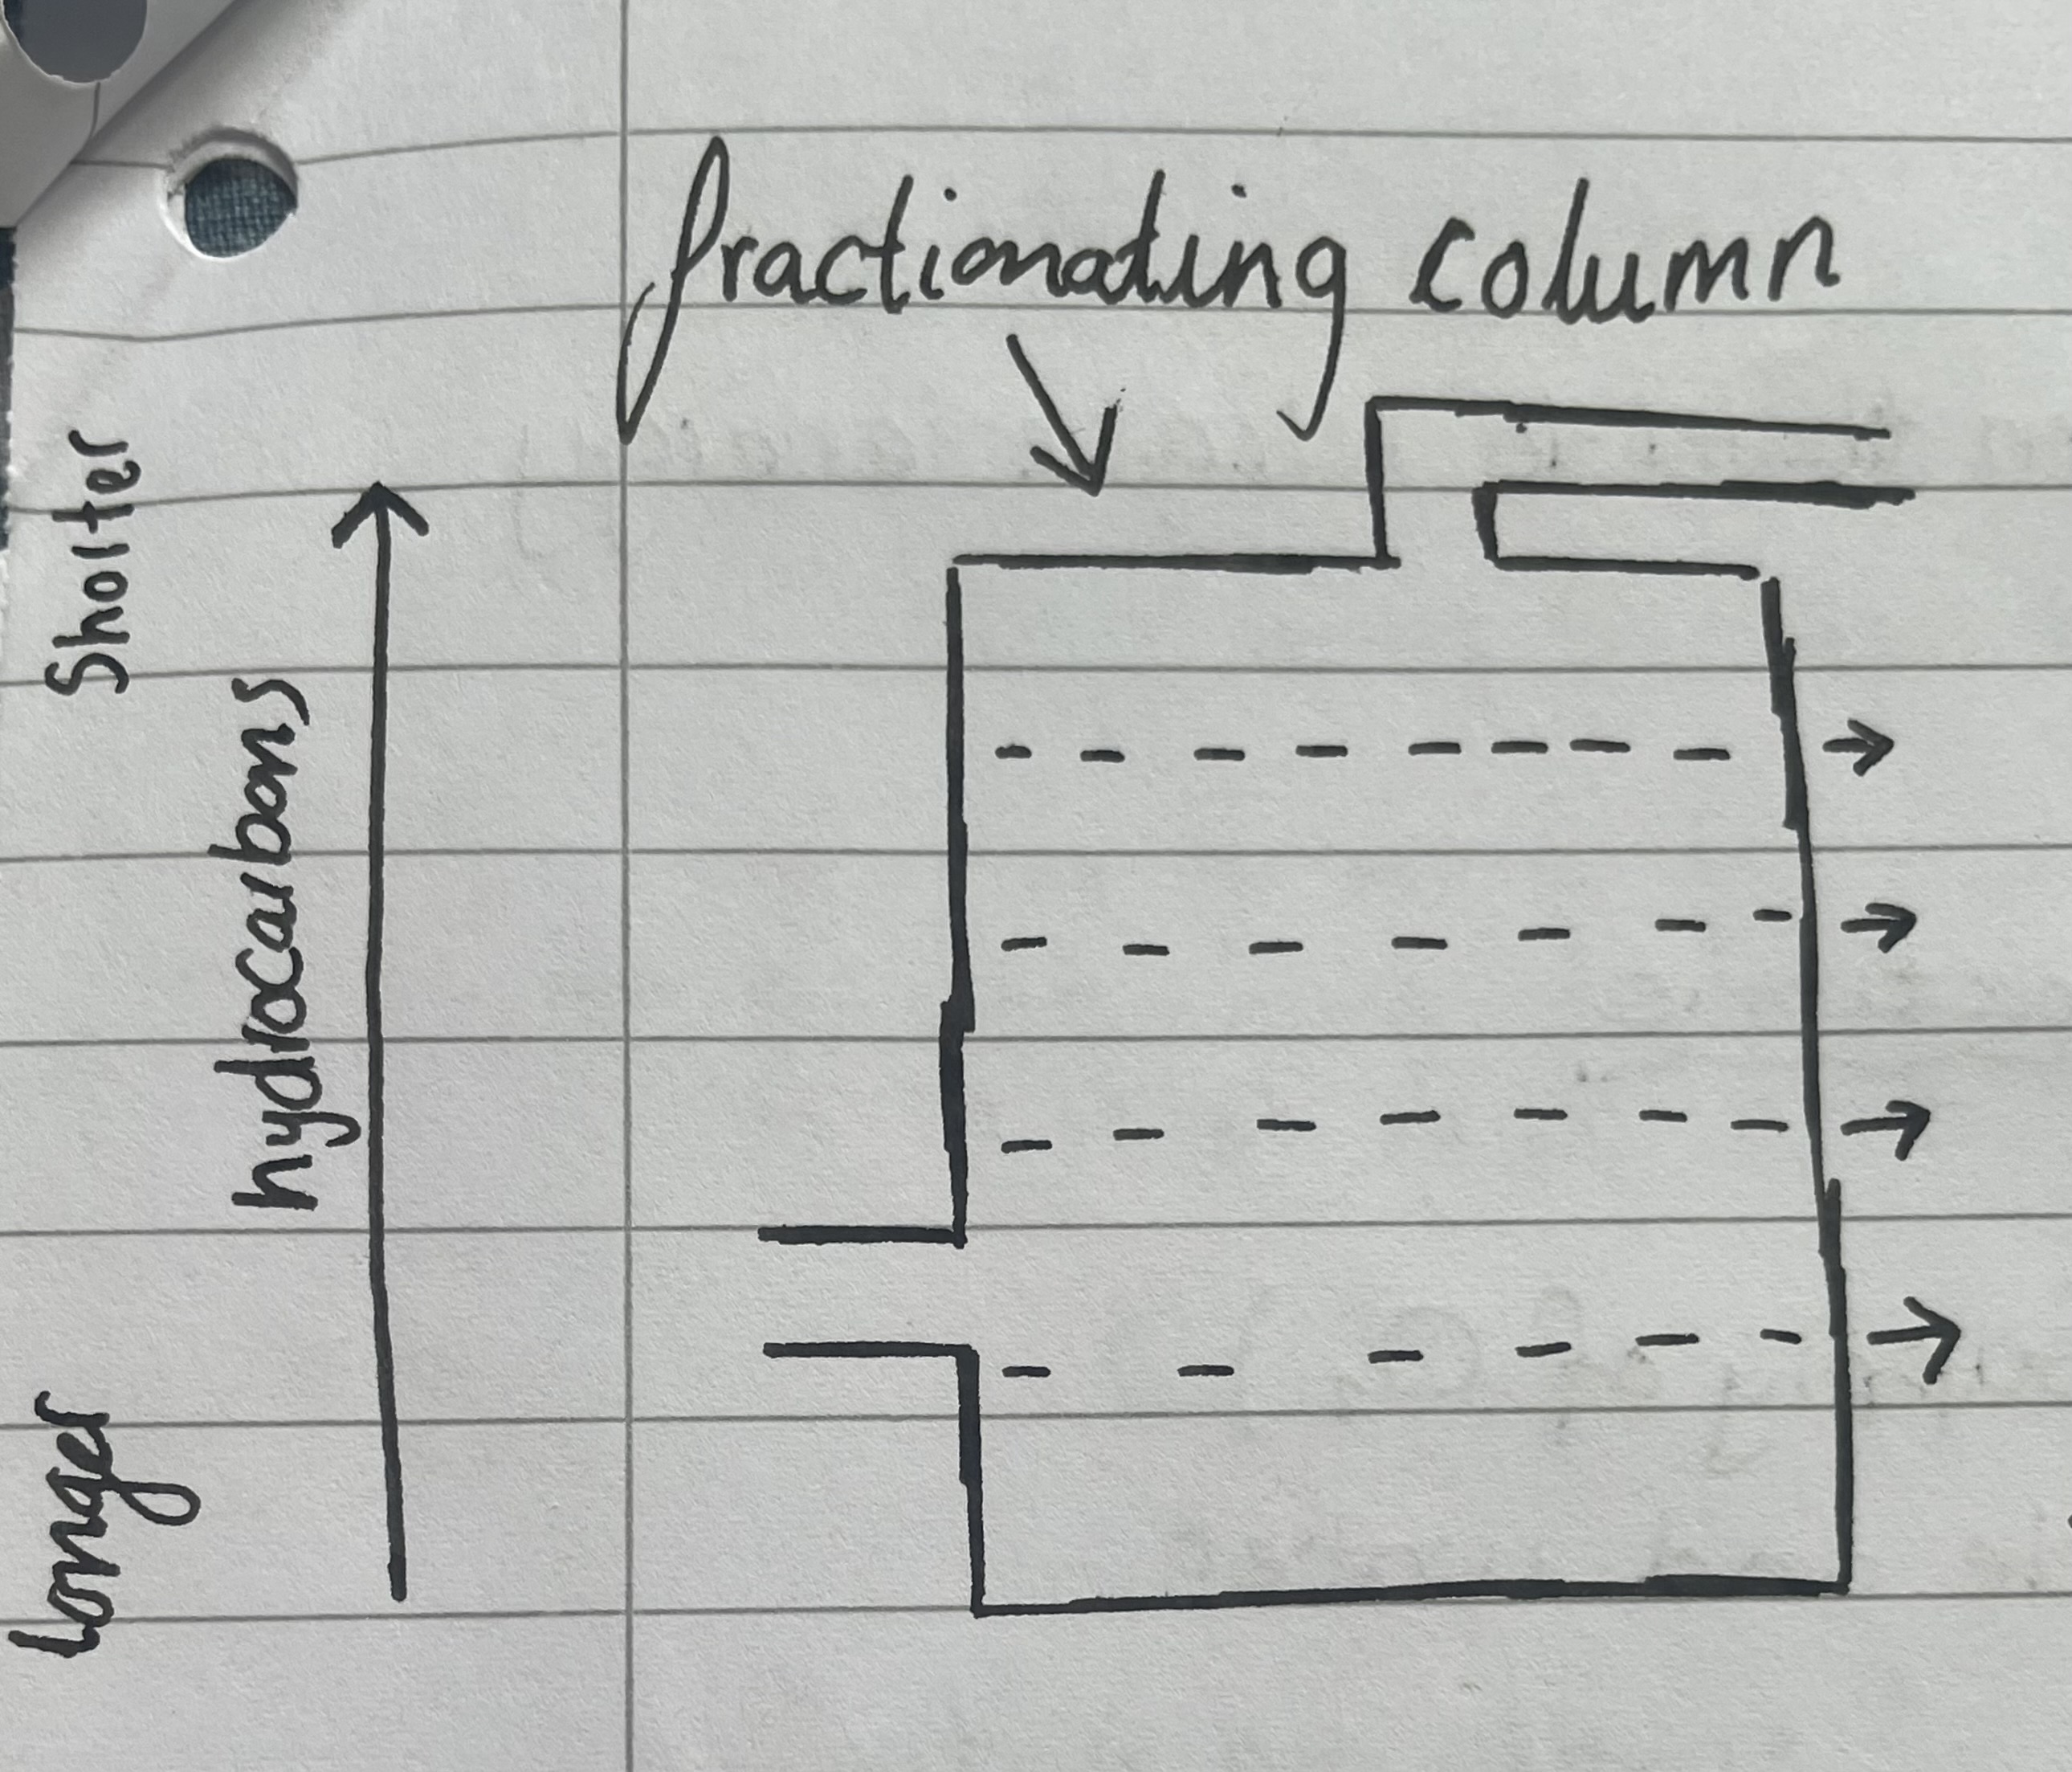 fractionating column
Shorter
hydrocarbons
Longer